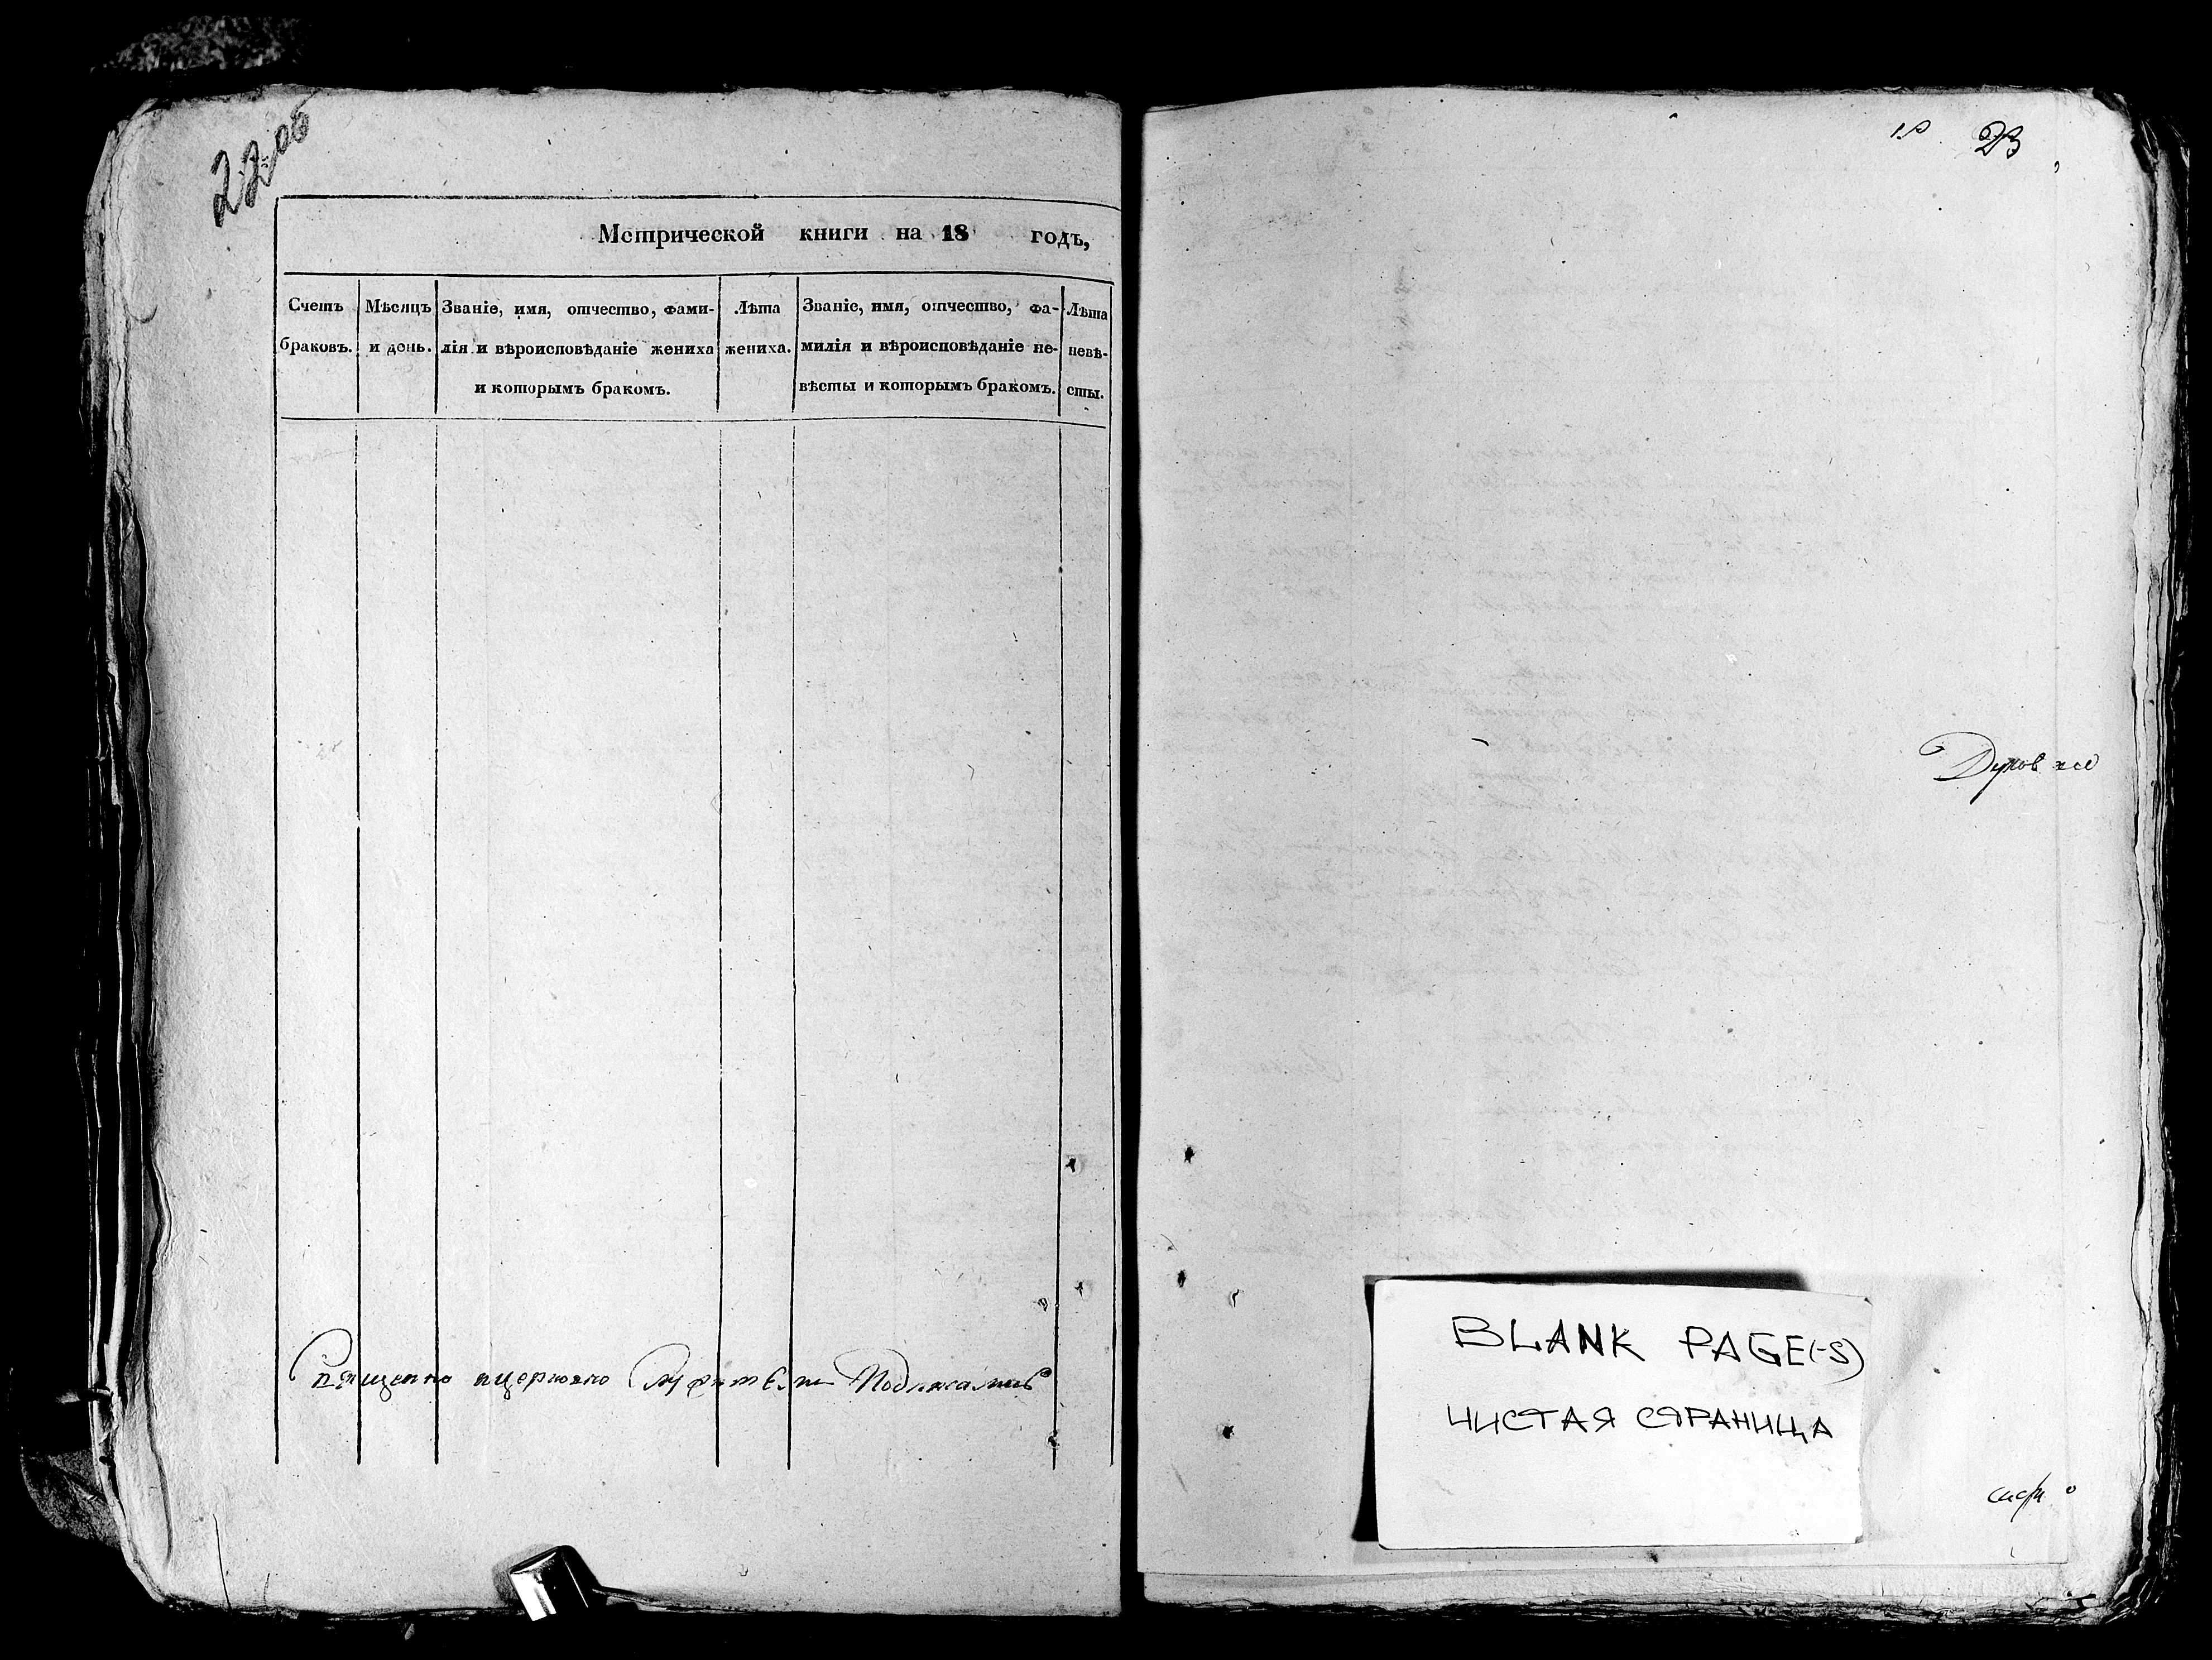 22об
Метрической книги на 18 годъ,
Счетъ браковъ.
Мѣсяцъ и день.
Званіе, имя, отчество, фами-
лія и вѣроисповѣданіе жениха
и которымъ бракомъ.
Лѣта жениха.
Званіе, имя, отчество, фа-
милія и вѣроисповѣданіе не-
вѣсты и которымъ бракомъ.
Лѣта
невѣ-
сты.
23
Духов
BLANK PAGE(-S)
ЧИСТАЯ СТРАНИЦА